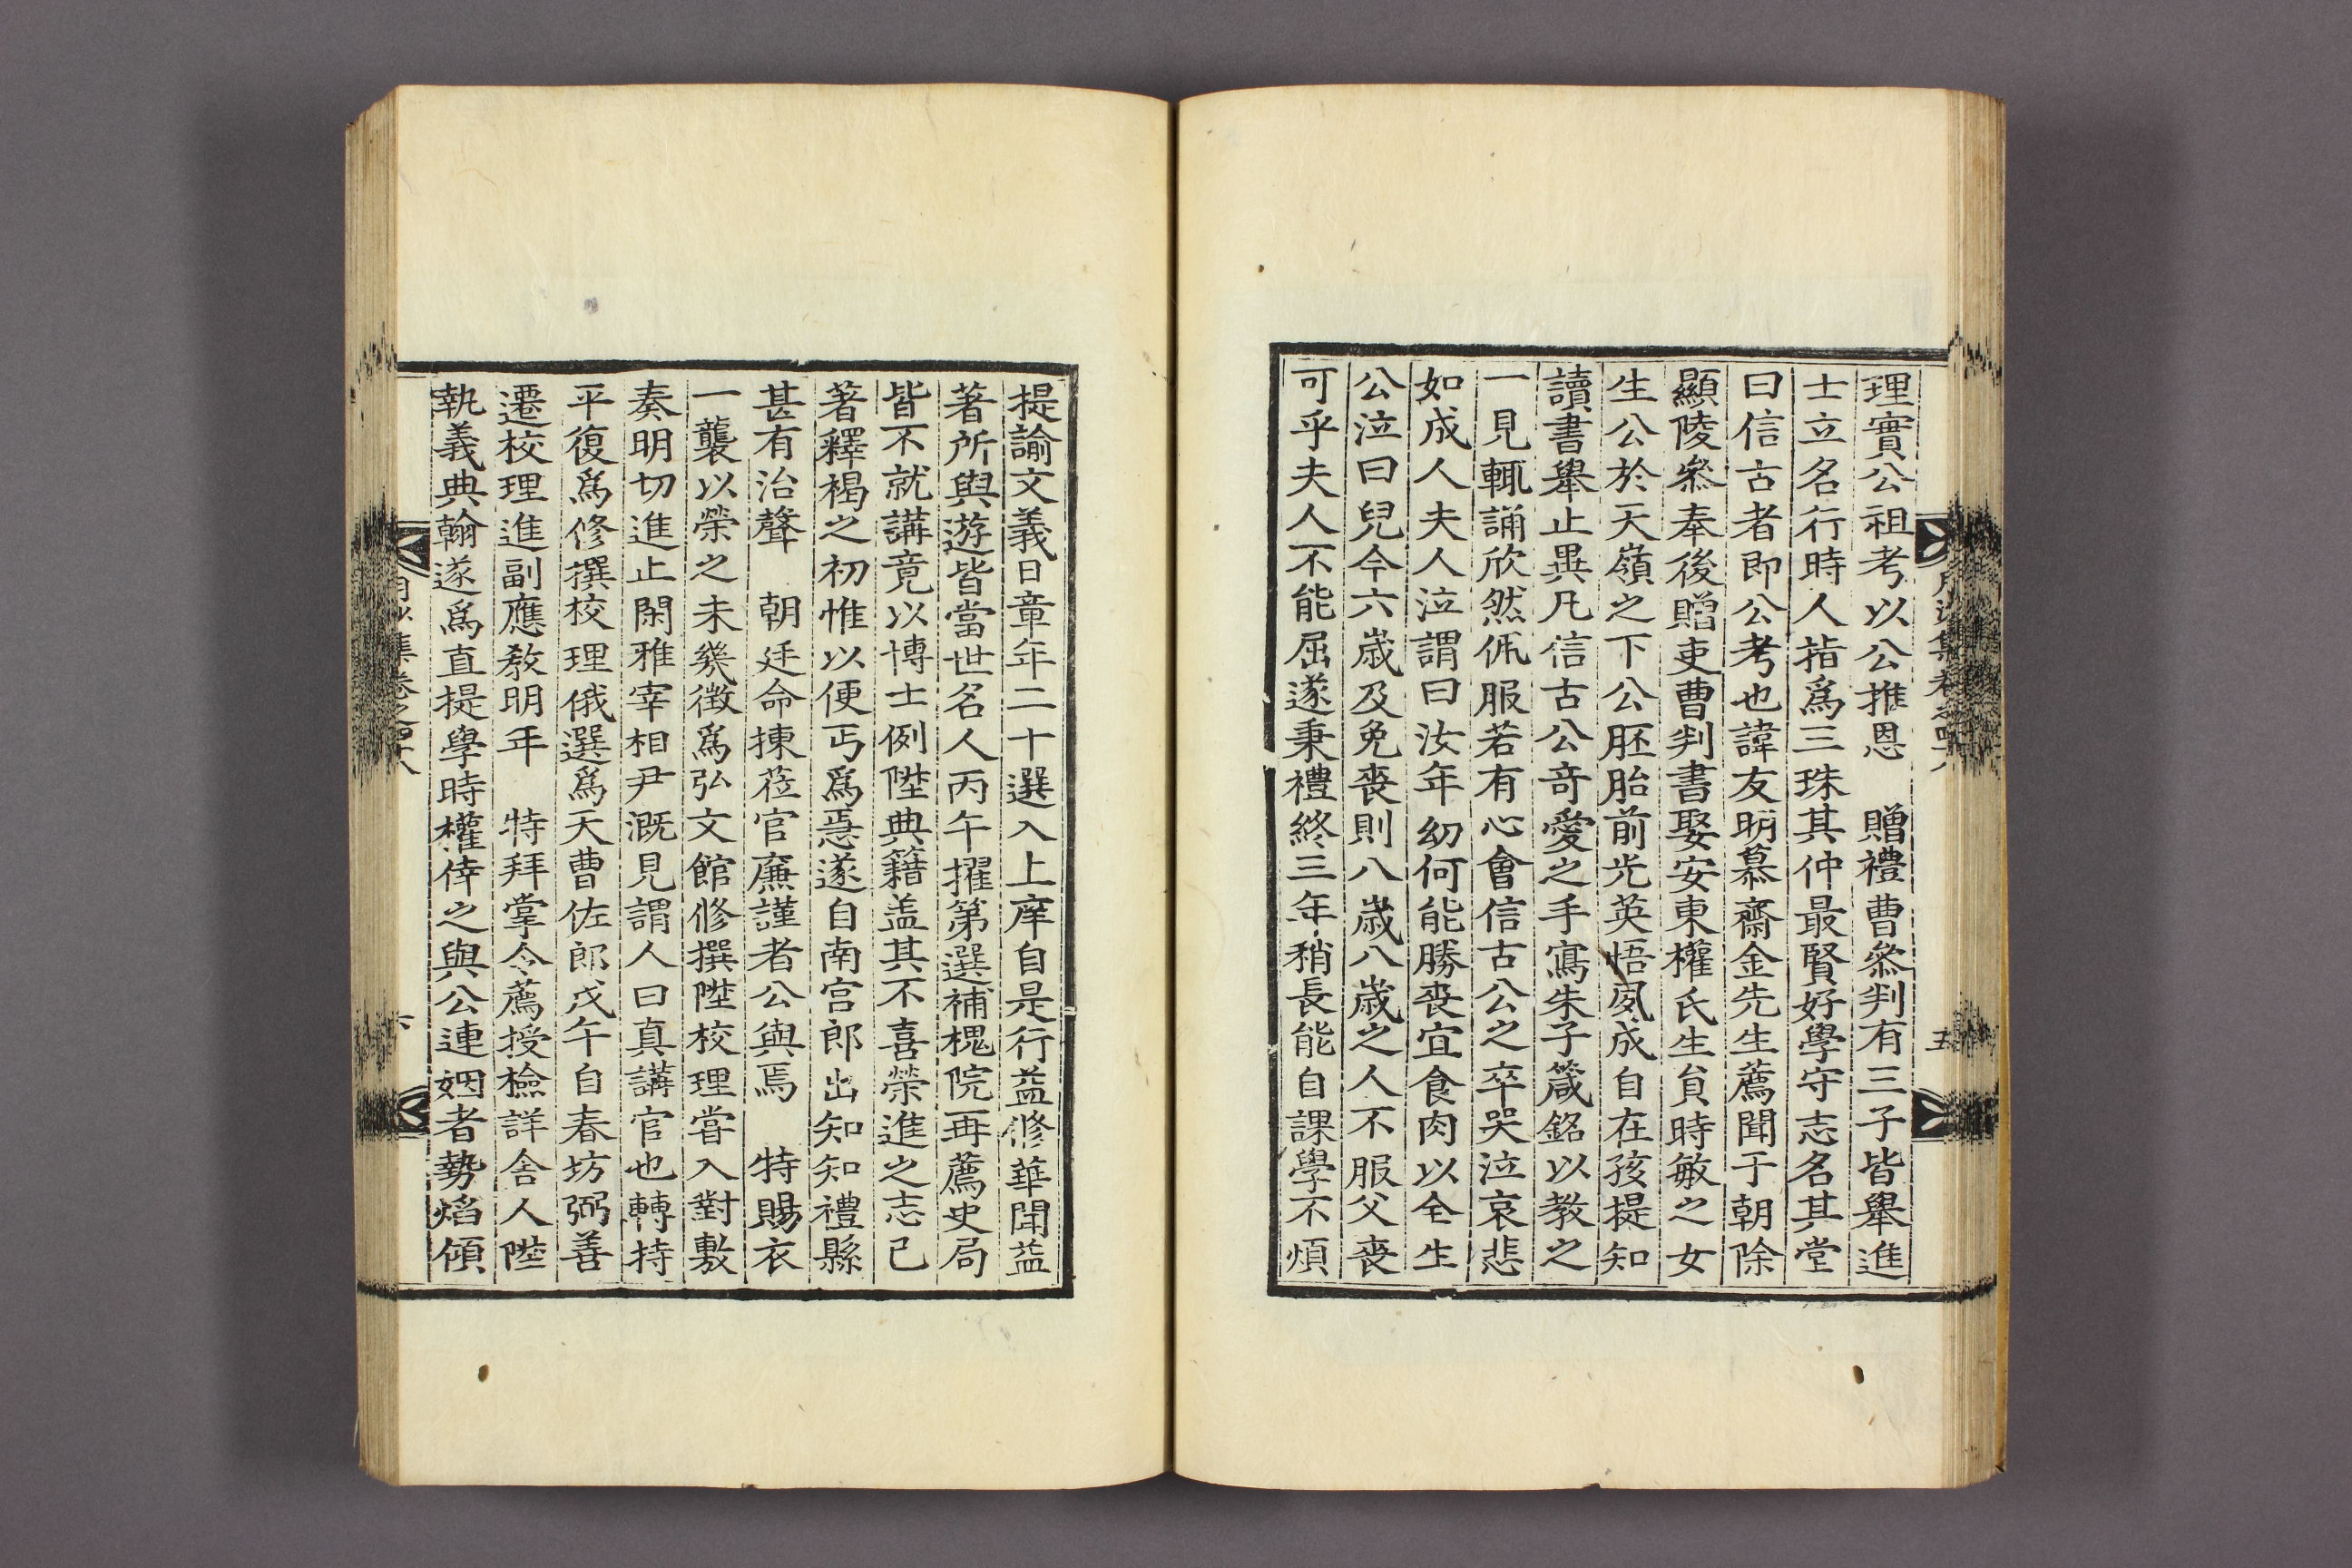 理實公祖考以公推恩 贈禮曹叅判有三子皆舉進
士立名行時人指爲三珠其仲最賢好學守志名其堂
曰信古者即公考也諱友明慕齋金先生薦聞于朝除
顯陵叅奉後贈吏曹判書娶安東權氏生貟時敏之女
生公於天嶺之下公胚胎前光英悟夙成自在孩提知
讀書舉止異凡信古公奇愛之手寫朱子箴銘以教之
一見輒誦欣然佩服若有心會信古公之卒哭泣哀悲
如成人夫人泣謂曰汝年幼何能勝喪宜食肉以全生
公泣曰兒今六歲及免喪則八歲八歲之人不服父喪
可乎夫人不能屈遂秉禮終三年稍長能自課學不煩
五
提諭文義日章年二十選入上庠自是行益修華聞益
著所與遊皆當世名人丙午擢第選補槐院再薦史局
皆不就講竟以博士例陞典籍盖其不喜榮進之志已
著釋褐之初惟以便丐爲急遂自南宮郎出知知禮縣
甚有治聲 朝廷命揀莅官廉謹者公與焉 特賜衣
一襲以榮之未幾徵爲弘文館修撰陞校理甞入對敷
奏明切進止閑雅宰相尹漑見謂人曰真講官也轉持
平復爲修撰校理俄選爲天曹佐郎戊午自春坊弼善
遷校理進副應敎明年 特拜掌令薦授檢詳舍人陞
執義典翰遂爲直提學時權倖之與公連姻者勢焰傾
月沙集卷之四十八
六